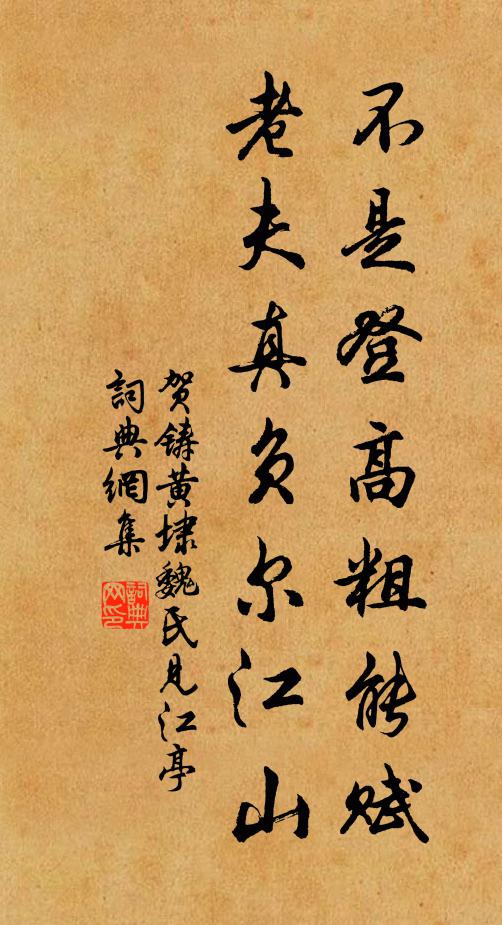 不是登高粗能賦
老夫真负尔江山
贺鑄黄埭魏氏見江亭
詞典網集
詞典
网印